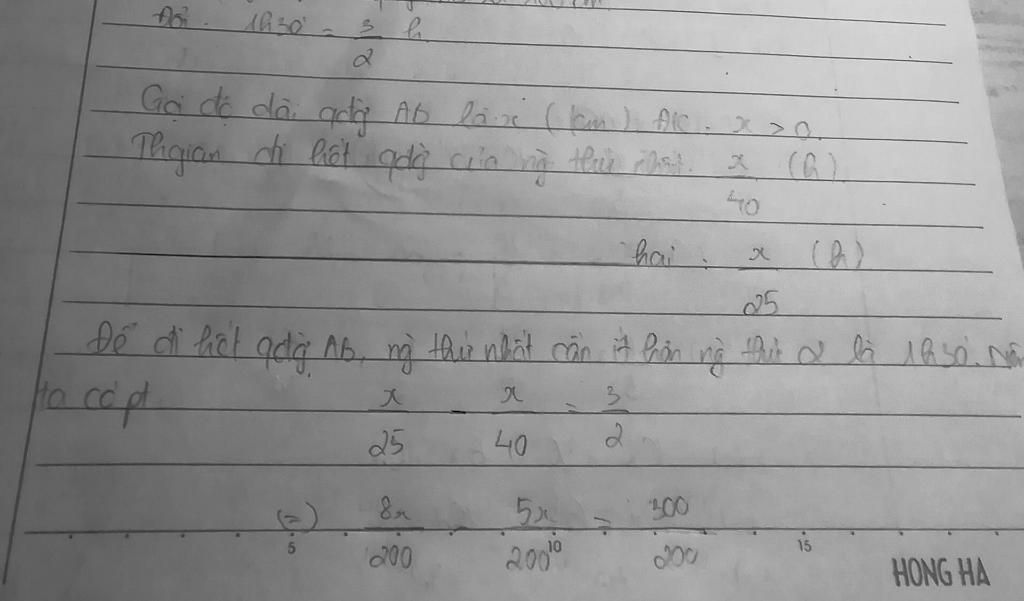 Đổi. 1h30' = 3/2 h
Gọi độ dài qđg AB là x (km) ĐK: x > 0.
Thgian đi hết qđg của ng thứ nhất: x/40 (h)
hai : x/25 (h)
Để đi hết qđg AB, ng thứ nhất cần ít hơn ng thứ 2 là 1h30'. Nên
ta có pt
x/25 - x/40 = 3/2
(=) 8x/200 - 5x/200 = 300/200
5 10 15
HONG HA